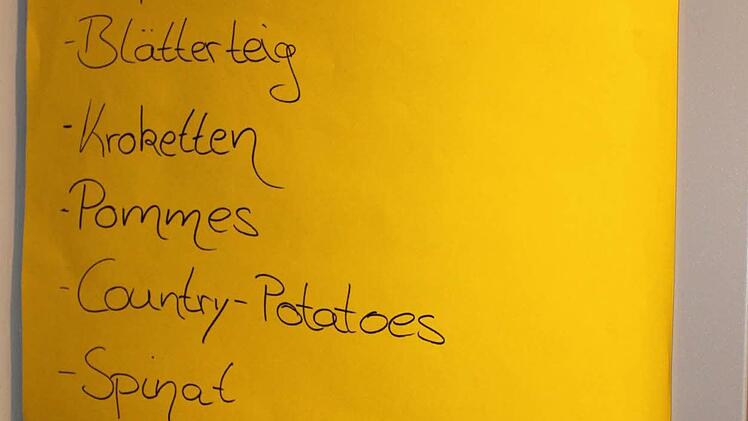 -Blätterteig
-Kroketten
-Pommes
-Country-Potatoes
-Spinat